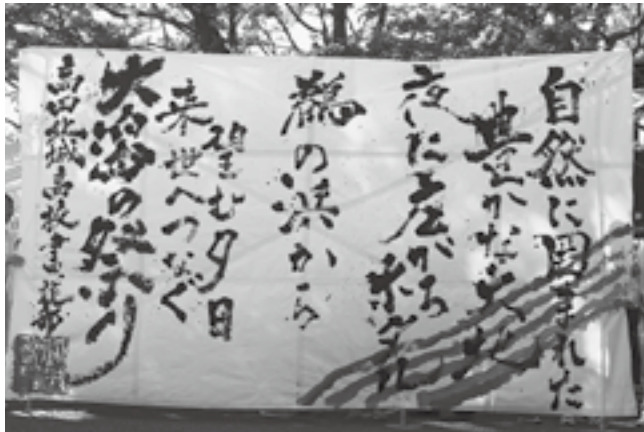 自然に囲まれた
豊かな大地
夜に広がる
鵜の浜から
望む夕日
来世へつなぐ
大潟の祭り
高田北城高校書道部